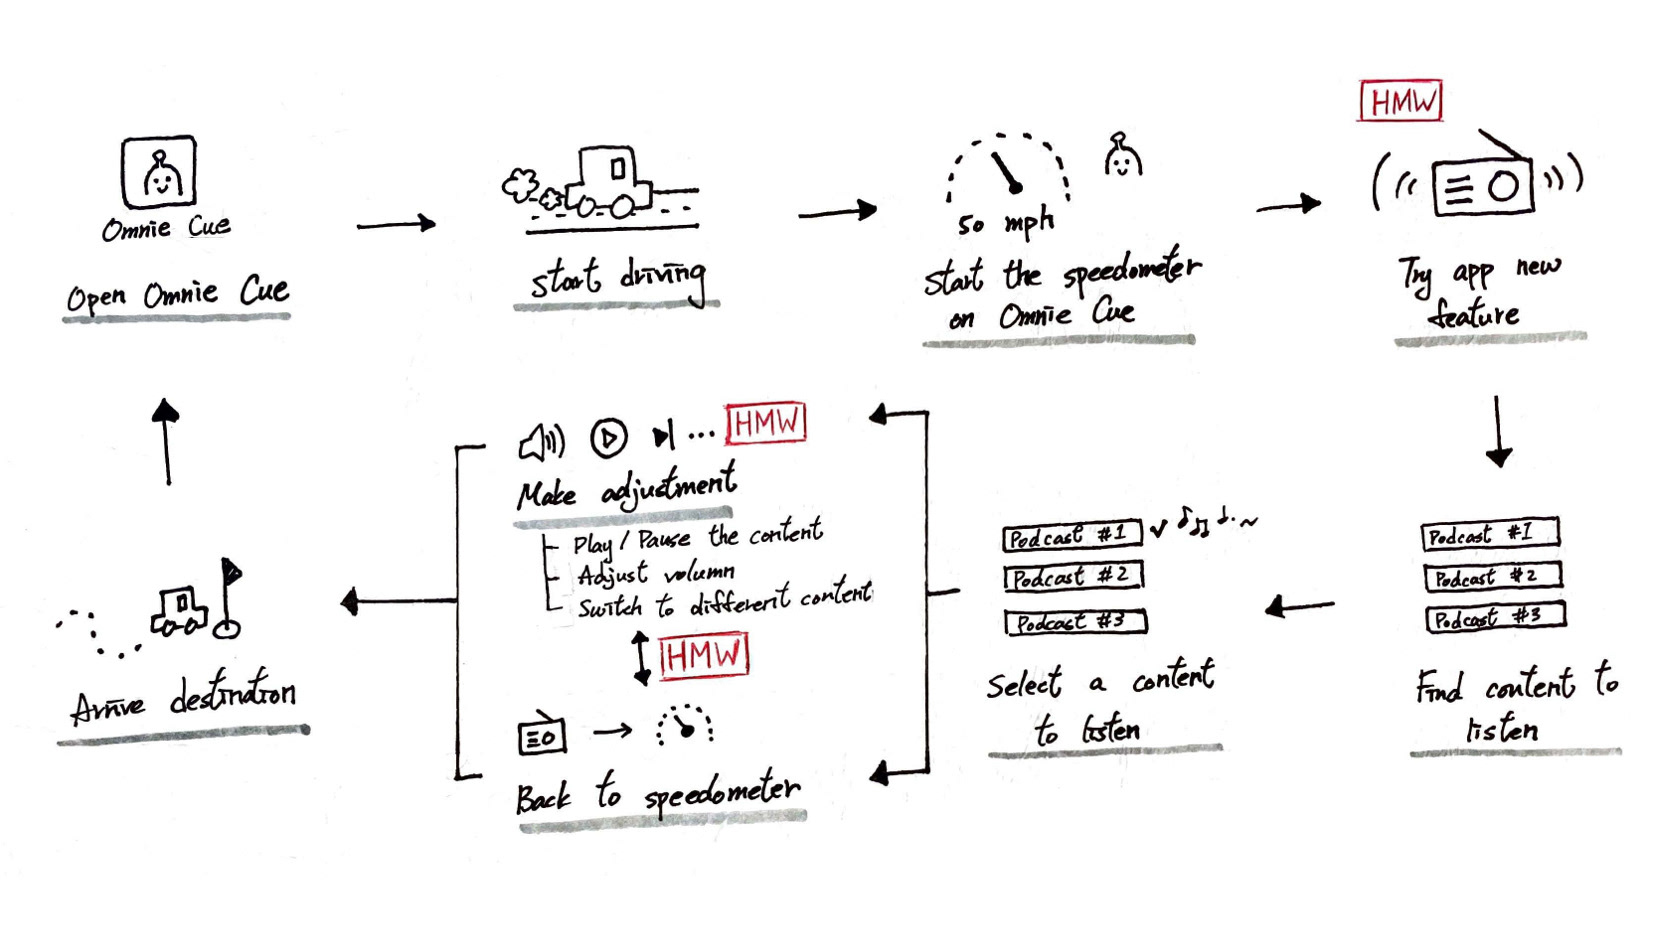 HMW
Omnie Cue
Open Omnie Cue
start driving
50 mph
Start the speedometer
on Omnie Cue
Try app new
feature
HMW
Make adjustment
Play / Pause the content
Adjust volumn
Switch to different content
HMW
Back to speedometer
Podcast #1
Podcast #2
Podcast #3
Select a content
to listen
Podcast #1
Podcast #2
Podcast #3
Find content to
listen
Arrive destination